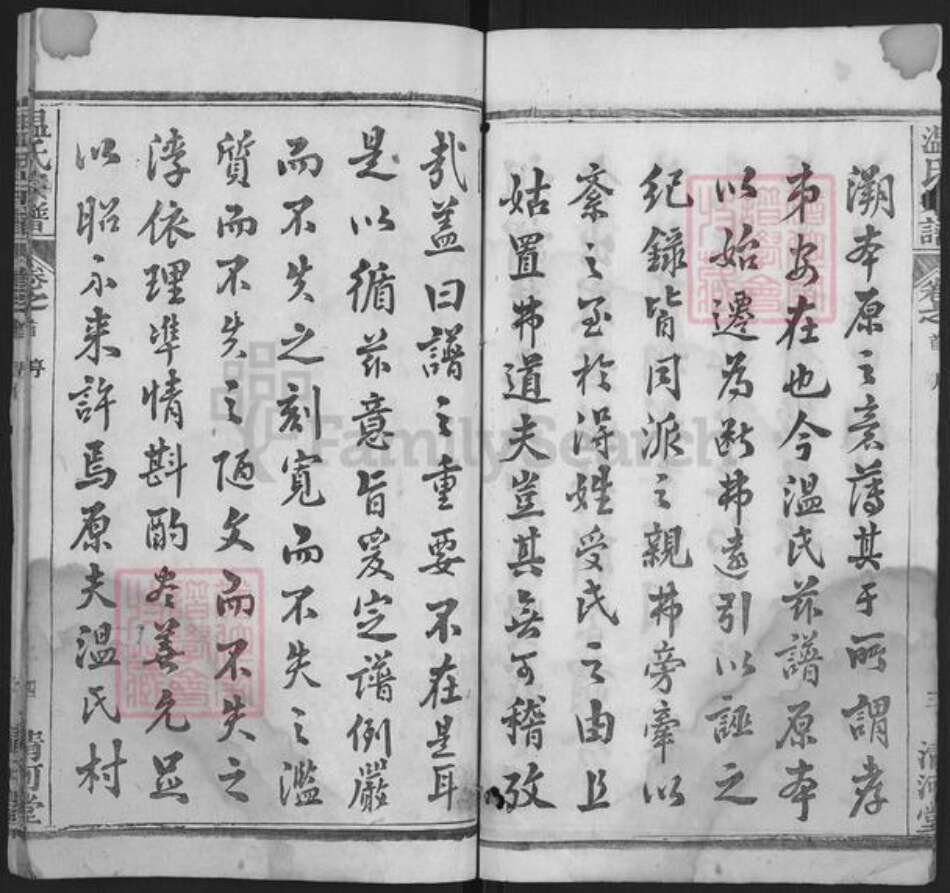 溯本原之意薄其于所謂孝
弟安在也今溫氏茲譜原本
以始遷為斷弗遠引以誣之
紀錄皆同派之親弗旁牽以
紊之至於得姓受氏之由且
姑置弗道夫豈其無可稽攷
哉蓋曰譜之重要不在是耳
是以循茲意旨爰定譜例嚴
而不失之刻寬而不失之濫
質而不失之陋文而不失之
浮依理準情斟酌盡善允足
以昭示來許焉原夫溫氏村
溫氏宗譜
卷之首
序
三
清河堂
溫氏宗譜
卷之首
序
四
清河堂
FamilySearch